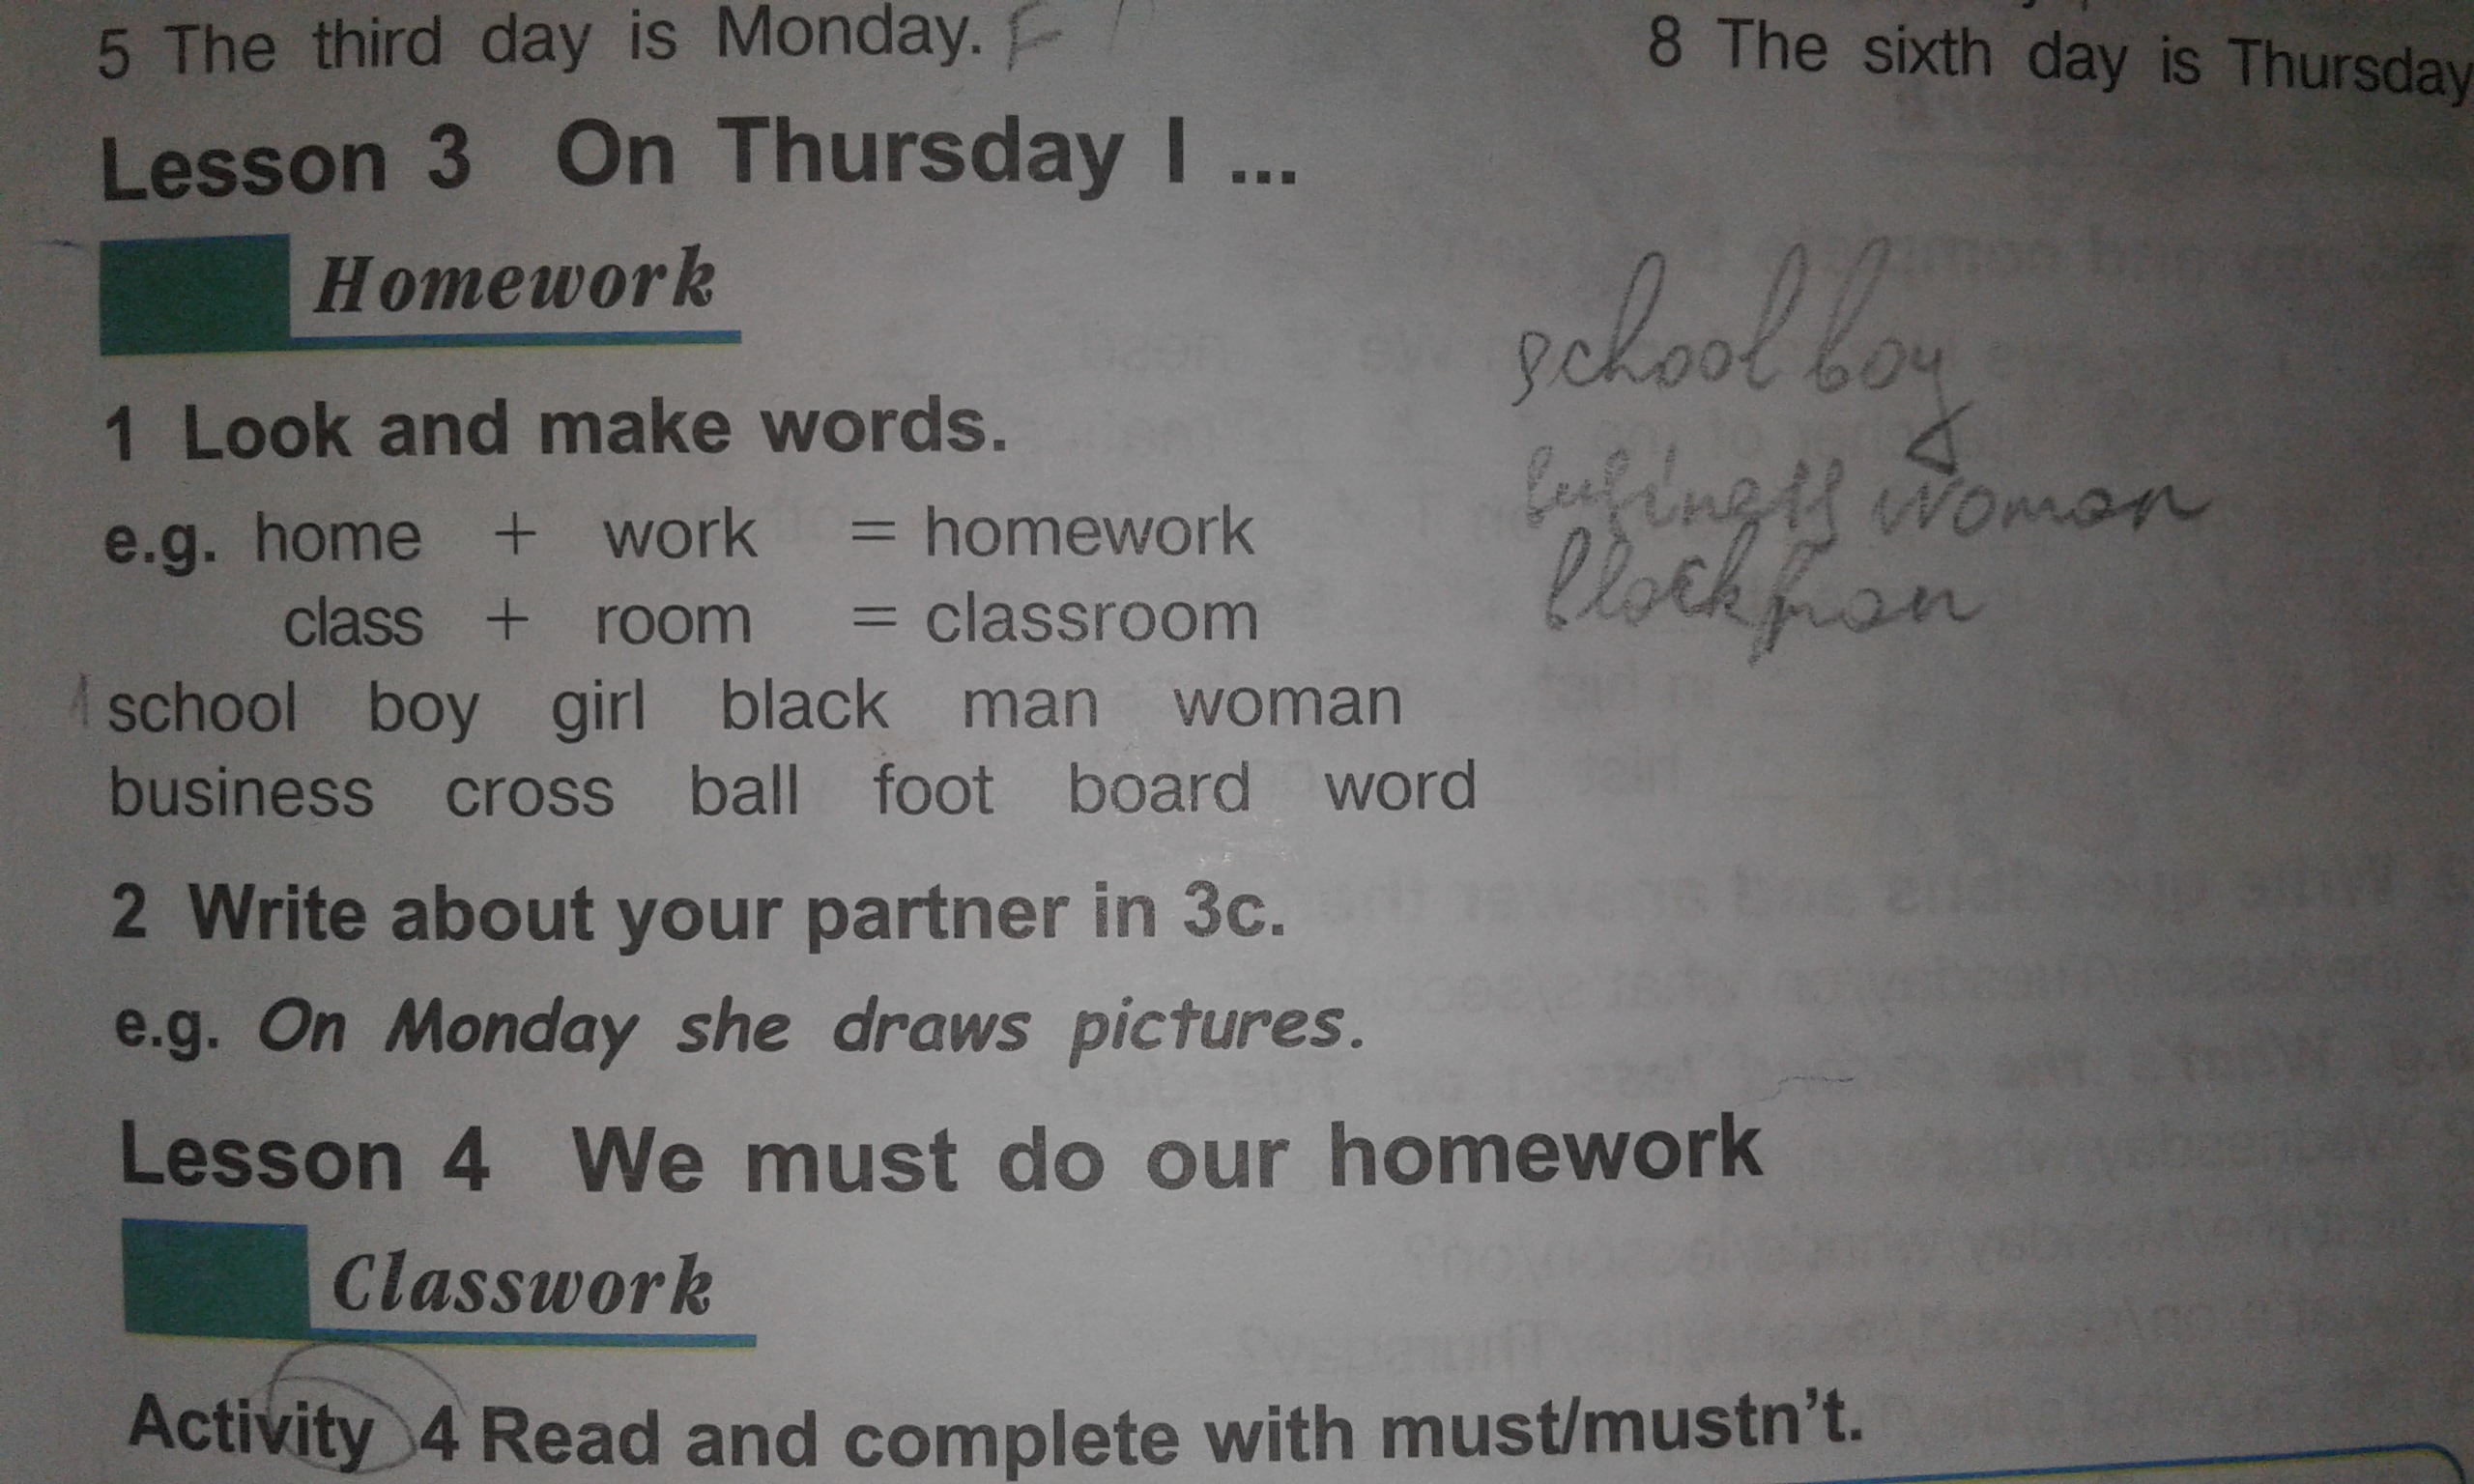 5 The third day is Monday. F
8 The sixth day is Thursday
Lesson 3 On Thursday I ...
Homework
1 Look and make words.
e.g. home + work = homework
class + room = classroom
school boy girl black man woman
business cross ball foot board word
school boy
business woman
black man
2 Write about your partner in 3c.
e.g. On Monday she draws pictures.
Lesson 4 We must do our homework
Classwork
Activity 4 Read and complete with must/mustn't.